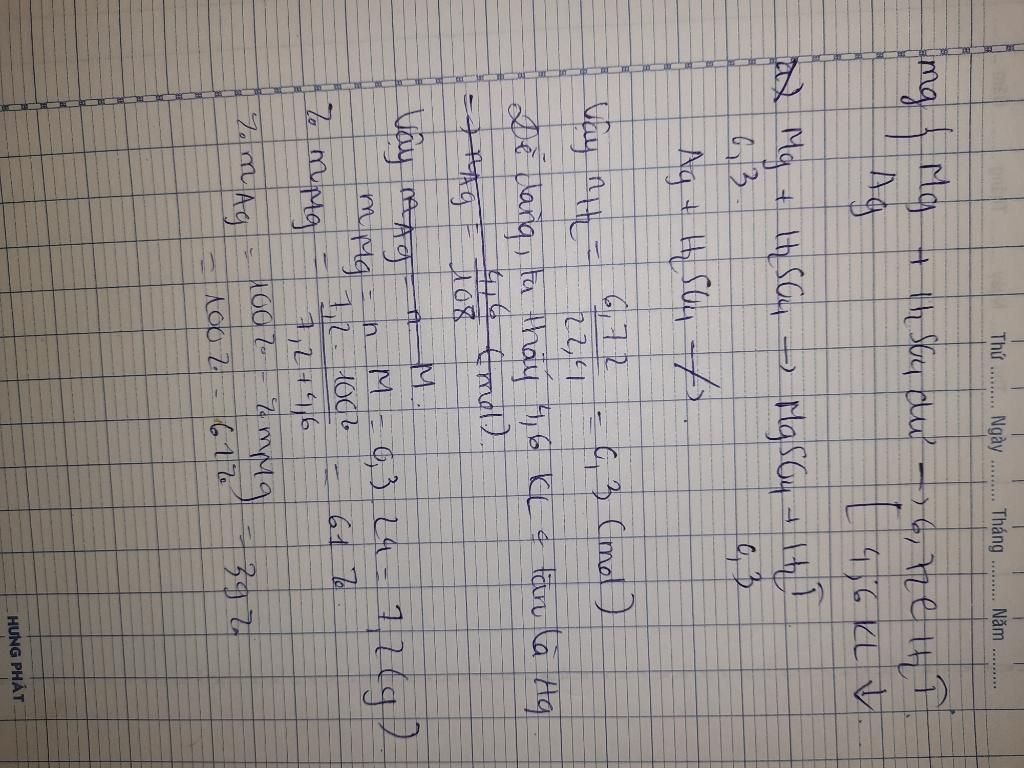 Thứ ......... Ngày ......... Tháng ......... Năm .........
mg { Mg + H₂SO₄ dư → 6,72 l H₂ ↑
Ag [ 4,6 KL ↓
a) Mg + H₂SO₄ → MgSO₄ + H₂ ↑
0,3 0,3
Ag + H₂SO₄ -/->
Vậy nH₂ = 6,72 / 22,4 = 0,3 (mol)
Dễ dàng, ta thấy 4,6 KL o tan là Ag
→ nAg = 4,6 / 108 (mol)
Vậy mAg = n M
mMg = n M = 0,3 24 = 7,2 (g)
% mMg = 7,2 . 100% / 7,2 + 4,6 = 61%
% mAg = 100% - %mMg)
= 100% - 61% = 39%
HUNG PHÁT